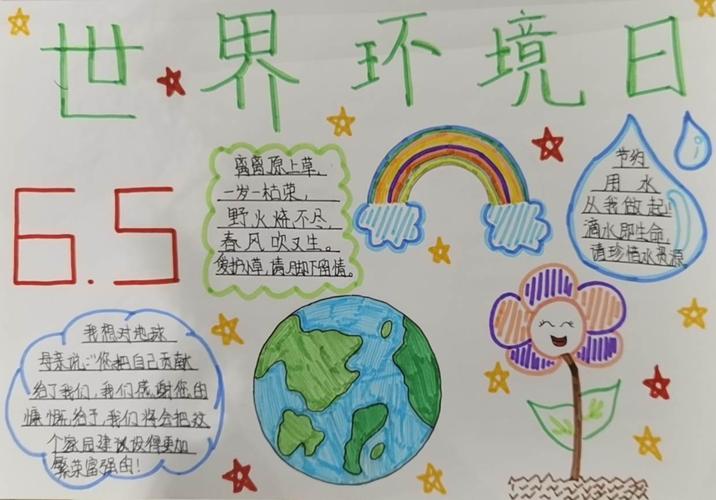 世界环境日
6.5
离离原上草,
一岁一枯荣,
野火烧不尽,
春风吹又生。
爱护小草,请脚下留情。
节约
用水
从我做起
滴水即生命,
请珍惜水资源
我想对地球
母亲说:“您把自己贡献
给了我们,我们感谢您的
慷慨给予,我们将会把这
个家园建设得更加
繁荣富强的!